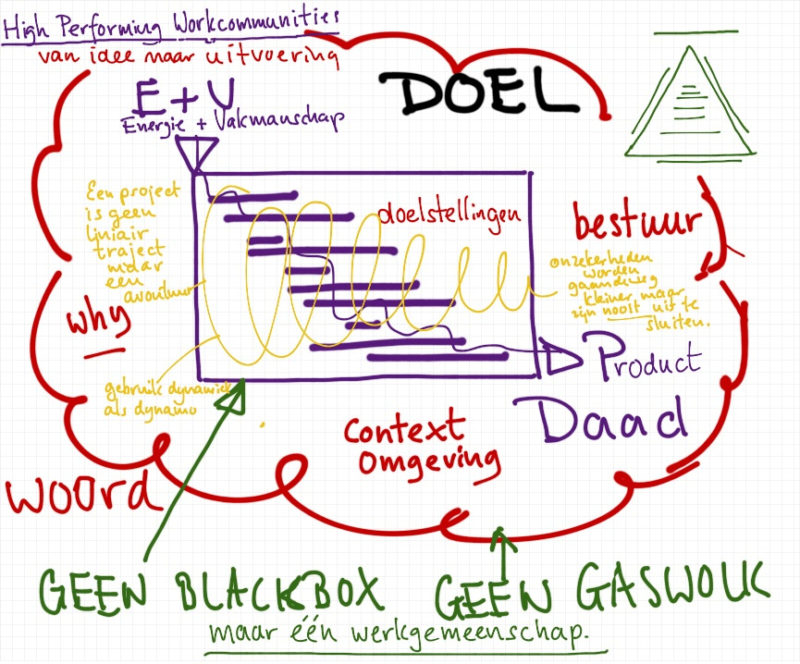 High Performing Workcommunities
van idee naar uitvoering
E + V
Energie + Vakmanschap
DOEL
Een project
is geen
liniair
traject
maar
een
avontuur
doelstellingen
bestuur
onzekerheden
worden
gaandeweg
kleiner maar
zijn nooit uit te
sluiten.
why
Product
Daad
gebruik dynamiek
als dynamo
Context
Omgeving
woord
GEEN BLACKBOX GEEN GASWOLK
maar één werkgemeenschap.